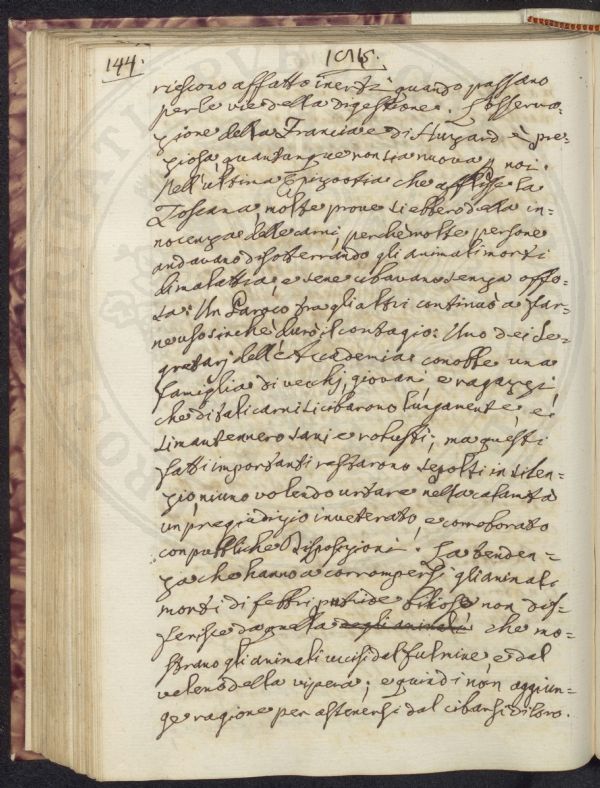 144.
riescono affatto inerti quando passano
per le vie della digestione. L'osserva-
zione della Francia e di Huzard è pre-
ziosa, quantunque non sia nuova p noi.
Nell'ultima Epizootia che afflisse la
Toscana, molte prove si ebbero della in-
nocenza delle carni, perché molte persone
andavano disotterrando gli animali morti
di malattia, e se ne cibavano senza offe-
sa: Un Paroco fra gli altri continuò a far-
ne uso sinché durò il contagio: Uno dei Se-
gretarj dell'Accademia conobbe una
famiglia di vecchj, giovani, e ragazzi
che di tali carni si cibarono lungamente, e
si mantennero sani e robusti; ma questi
fatti importanti restarono sepolti in silen-
zio, niuno volendo urtare nella calamità
un pregiudizio inveterato, e corroborato
con pubbliche disposizioni. La tenden-
za che hanno a corrompersi gli animali
morti di febbri putride biliose non dif-
ferisce da quella degli animali che mo-
strano gli animali uccisi dal fulmine e dal
veleno della vipera; e quindi non aggiun-
ge ragione per astenersi dal cibarsi di loro.